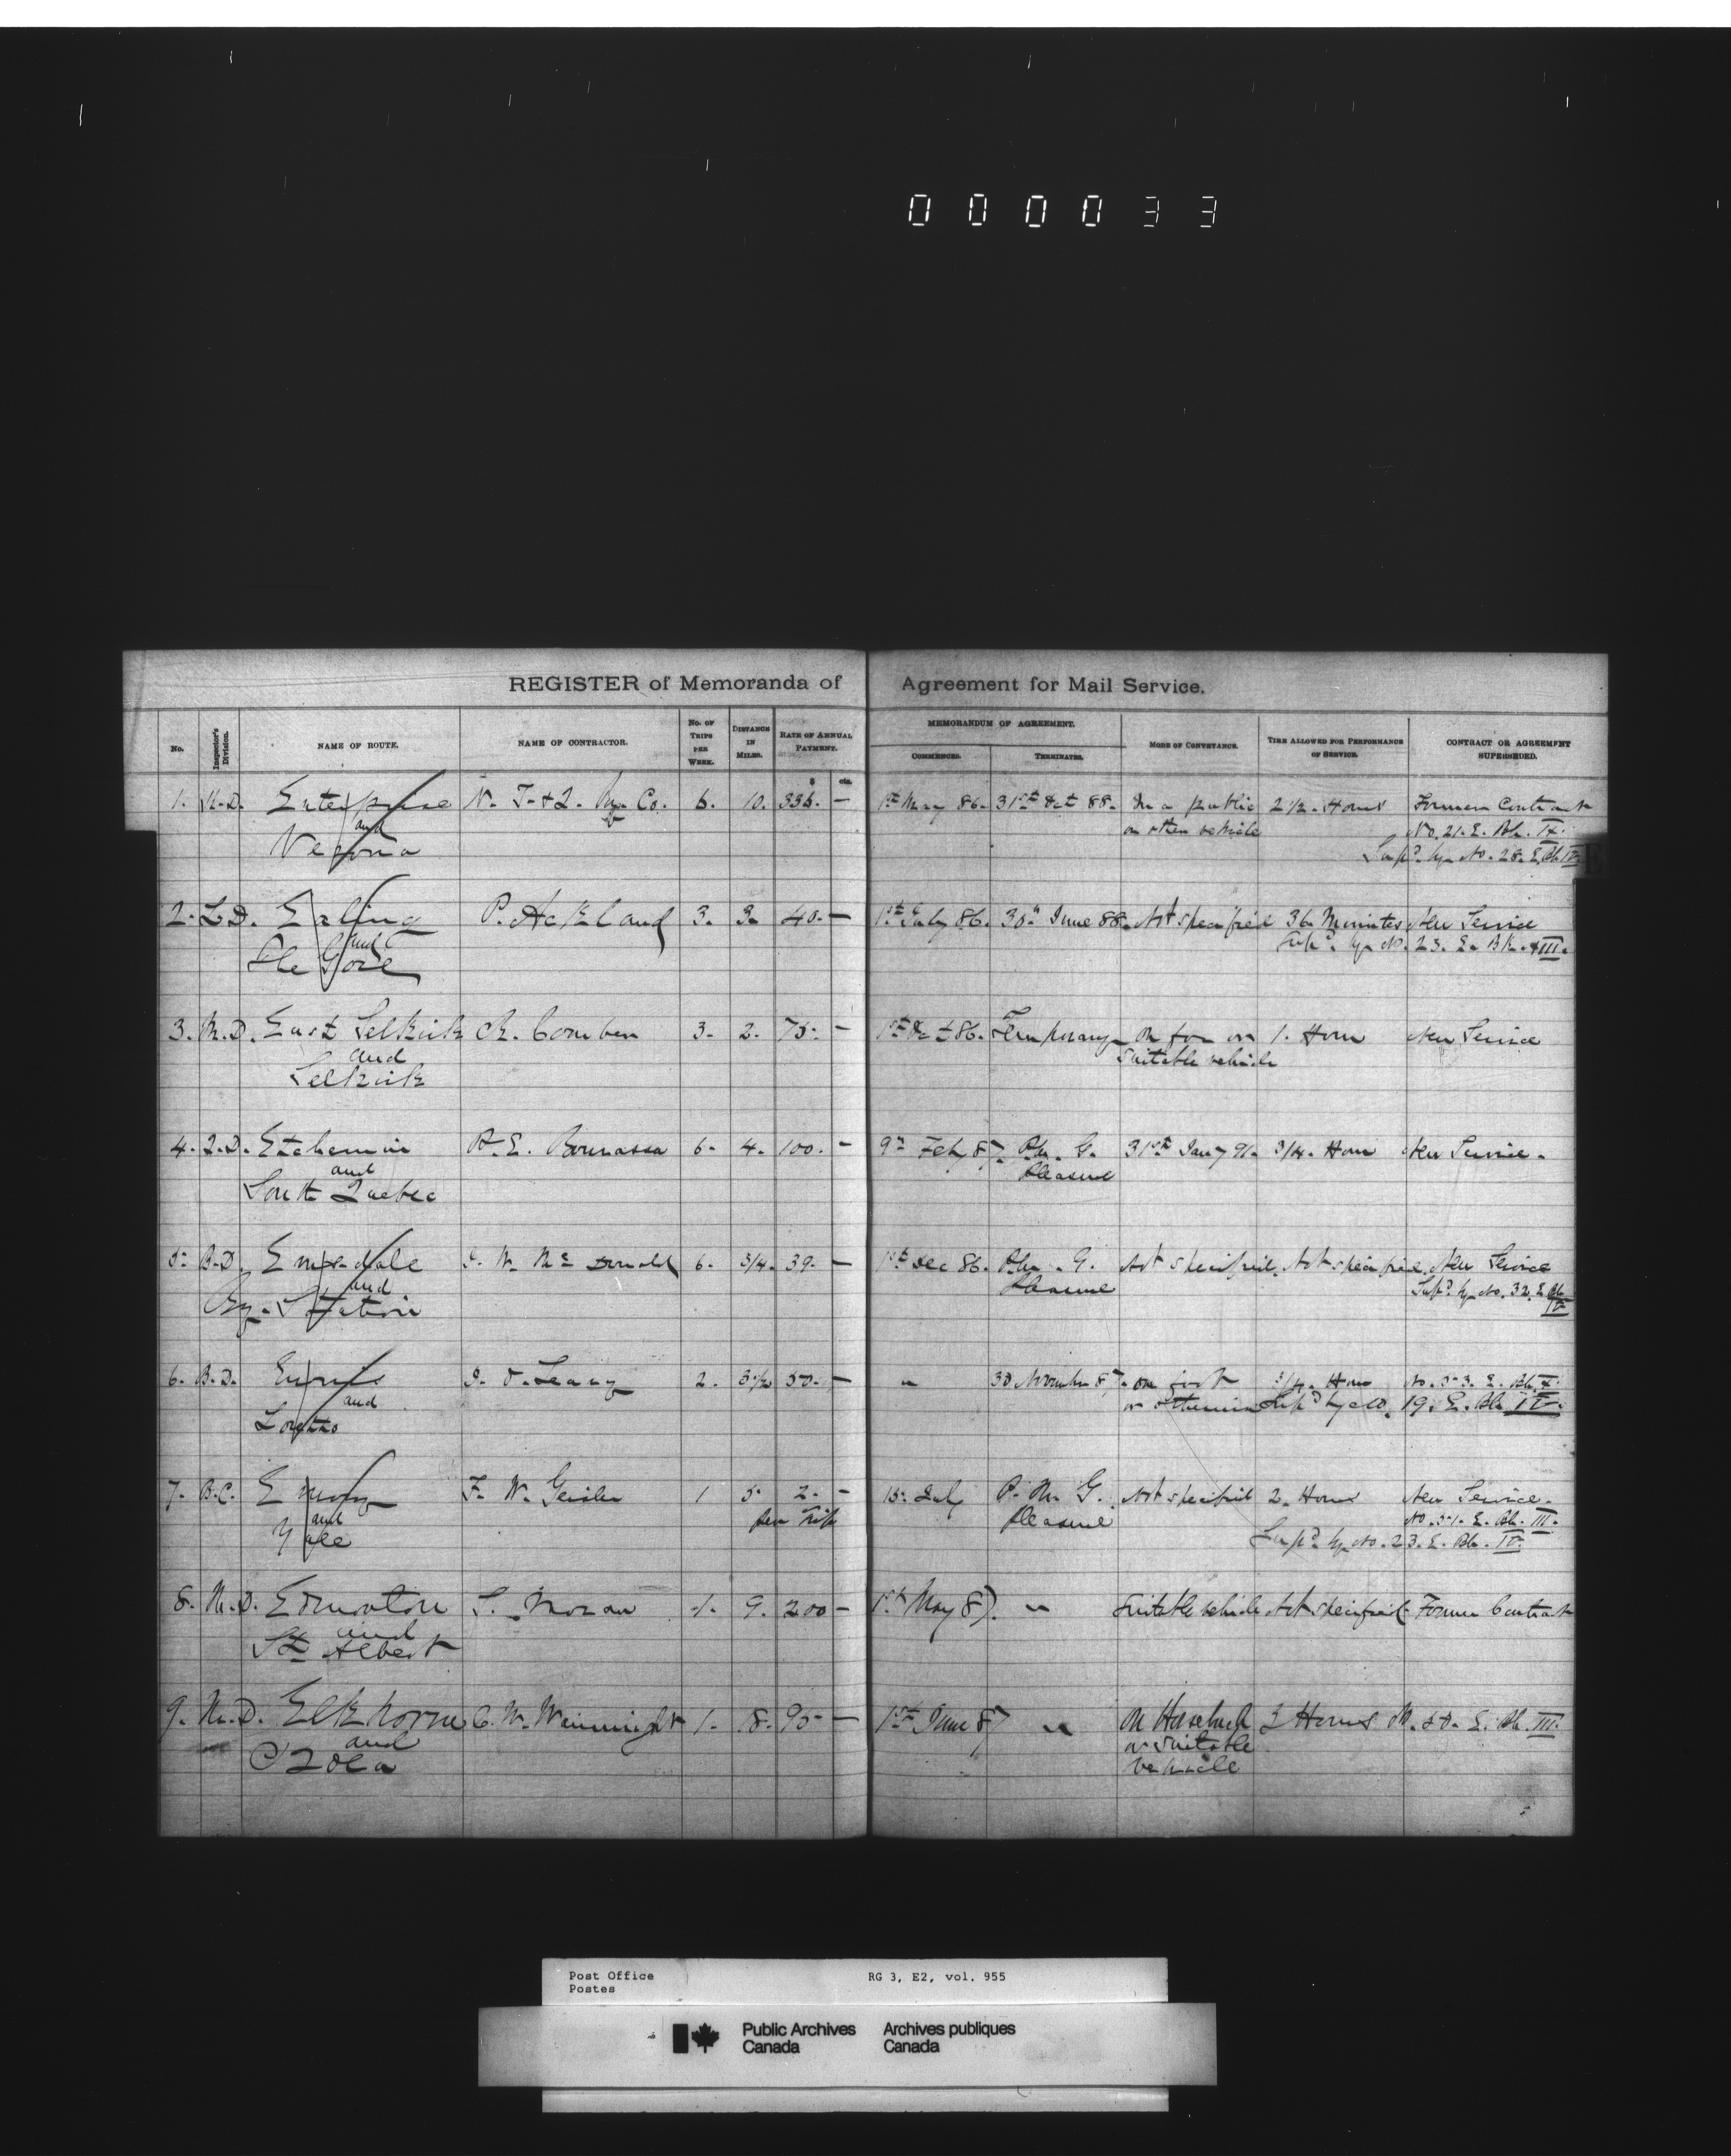 000033
REGISTER of Memoranda of Agreement for Mail Service.
No. Inspector's Division. NAME OF ROUTE. NAME OF CONTRACTOR. No. OF TRIPS PER WEEK. DISTANCE IN MILES. RATE OF ANNUAL PAYMENT. MEMORANDUM OF AGREEMENT. COMMENCES. TERMINATES. MODE OF CONVEYANCE. TIME ALLOWED FOR PERFORMANCE OF SERVICE. CONTRACT OR AGREEMENT SUPERSEDED.
$ cts.
1. K.D. Enterprise N. T. & Q. Ry. Co. 6. 10. 336. — 1st May 86. 31st Oct 88. In a public 2 1/2. Hours Former Contract
and or other vehicle No. 21. E. Bk. IV.
Verona Supd. by No. 28. E. Bk IV.
2. L.D. Ealing P. Ackland 3. 3. 40. — 1st July 86. 30th June 88. Not specified 36 Minutes New Service
and Supd. by No. 23. E. Bk. III.
The Gore
3. M.D. East Selkirk R. Comben 3. 2. 75. — 1st Oct 86. Temporary On foot or 1. Hour New Service
and suitable vehicle
Selkirk
4. Q.D. Etchemin A. E. Bourassa 6. 4. 100. — 9th Feby 87. P.M. G. 31st Jany 91. 3/4. Hour New Service.
and Pleasure
South Quebec
5. B.D. Emsdale J. W. McDonald 6. 3/4. 39. — 1st Dec 86. P.M. G. Not specified. Not specified. New Service
and Pleasure Supd. by No. 32. E Bk
Ry. Station IV
6. B.D. Ennis J. O. Leary 2. 3 1/2 50. — " 30 November 87. on foot 3/4. Hour No. 53. E. Bk. X.
and or otherwise Supd by No. 19. E. Bk IV.
Loretto
7. B.C. Emory F. W. Geisler 1 5. 2. — 15. July P. M. G. Not specified 2. Hours New Service.
and per Trip Pleasure No. 51. E. Bk. III.
Yale Supd. by No. 23. E. Bk. IV.
8. M.D. Edmonton L. Moran 1. 9. 200 — 1st May 87. " Suitable vehicle Not specified. Former Contract
and
St Albert
9. M.D. Elkhorn C. W. Wainwright 1. 18. 95 — 1st June 87 " On Horseback 3 Hours E. Bk. III.
and or suitable
vehicle
Post Office RG 3, E2, vol. 955
Postes
Public Archives Archives publiques
Canada Canada